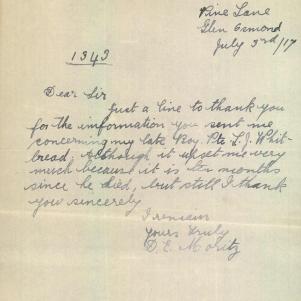 Pine Lane
Glen Osmond
July 3rd/17
1343
Dear Sir
Just a line to thank you
for the information you sent me
concerning my late Boy. Pte L. J. Whit-
bread. Although it upset me very
much because it is ten months
since he died, but still I thank
you sincerely
I remain
Yours truly
D. E.